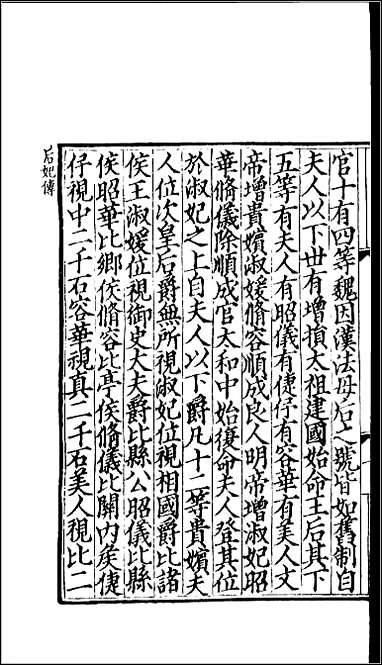 官十有四等魏因漢法母后之號皆如舊制自
夫人以下世有增損太祖建國始命王后其下
五等有夫人有昭儀有倢伃有容華有美人文
帝增貴嬪淑媛脩容順成良人明帝增淑妃昭
華脩儀除順成官太和中始復命夫人登其位
於淑妃之上自夫人以下爵凡十二等貴嬪夫
人位次皇后爵無所視淑妃位視相國爵比諸
侯王淑媛位視御史大夫爵比縣公昭儀比縣
侯昭華比鄉侯脩容比亭侯脩儀比關內侯倢
伃視中二千石容華視真二千石美人視比二
后妃傳